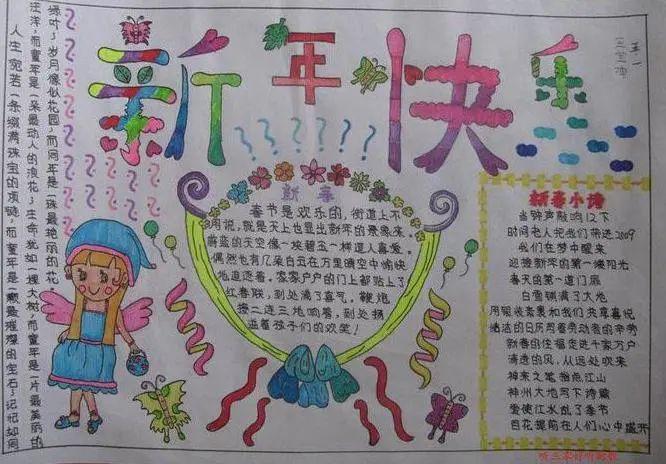 新年快乐
五一
新春
春节是欢乐的，街道上不
用说，就是天上也显出新年的景象来。
蔚蓝的天空像一块碧玉一样逗人喜爱。
偶然也有几朵白云在万里晴空中愉快
地逛逛着。家家户户的门上都贴上了
红春联，到处满了喜气，鞭炮
接二连三地响着，到处扬
溢着孩子们的欢笑！
新春小诗
当钟声敲响12下
时间老人把我们带进2009
我们在梦中醒来
迎接新年的第一缕阳光
春天的第一道门扉
白雪铺满了大地
用银装素裹和我们共享喜悦
结法的日历用着劳动者的辛劳
新春的住福走进千家万户
清造的风，从远处吹来
神来之笔指点江山
神州大地写下诗篇
爱使江水乱了季节
百花提前在人们心中盛开
人生宛若一条缀满珠宝的项链，而童年是一颗最璀璨的宝石；记忆如同
汪洋，而童年是一朵最动人的浪花；生命犹如一棵大树，而童年是一片最美丽的
绿叶；岁月像似花园，而同年是一珠最艳丽的花